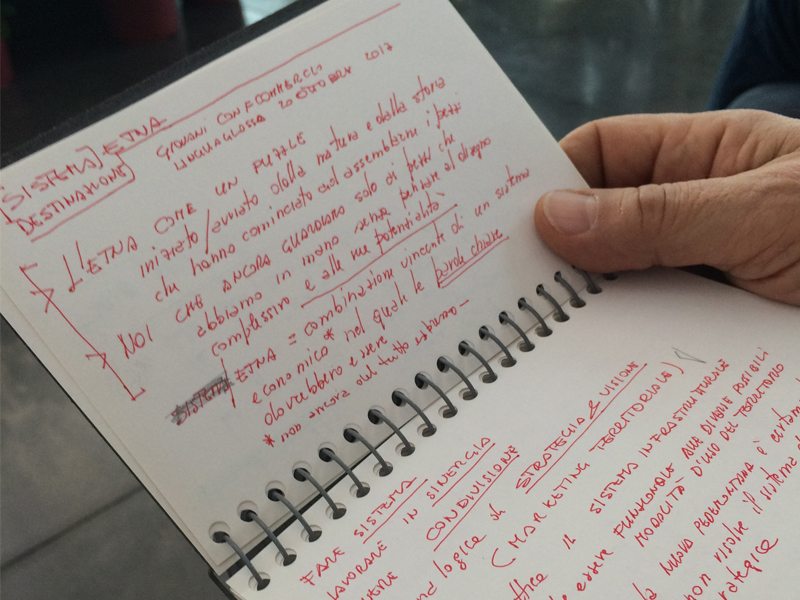 [SISTEMA] ETNA
DESTINAZIONE]
GIOVANI CONFCOMMERCIO
LINGUAGLOSSA 20 OTTOBRE 2017
L'ETNA COME UN PUZZLE
iniziato/avviato dalla natura e dalla storia
che hanno cominciato ad assemblarne i pezzi
NOI CHE ANCORA GUARDIAMO solo di pezzi che
abbiamo in mano senza pensare al disegno
complessivo e alle sue potenzialità
SISTEMA ETNA = combinazione vincente di un sistema
economico* nel quale le parole chiave
dovrebbero essere
* non ancora del tutto espresso -
FARE SISTEMA
LAVORARE IN SINERGIA
CONDIVISIONE
logica di STRATEGIA & VISIONE
(MARKETING TERRITORIALE)
il SISTEMA INFRASTRUTTURALE
essere FUNZIONALE ALLE DIVERSE POSSIBILI
MODALITÀ D'USO DEL TERRITORIO
la NUOVA PEDEMONTANA è
non risolve il sistema